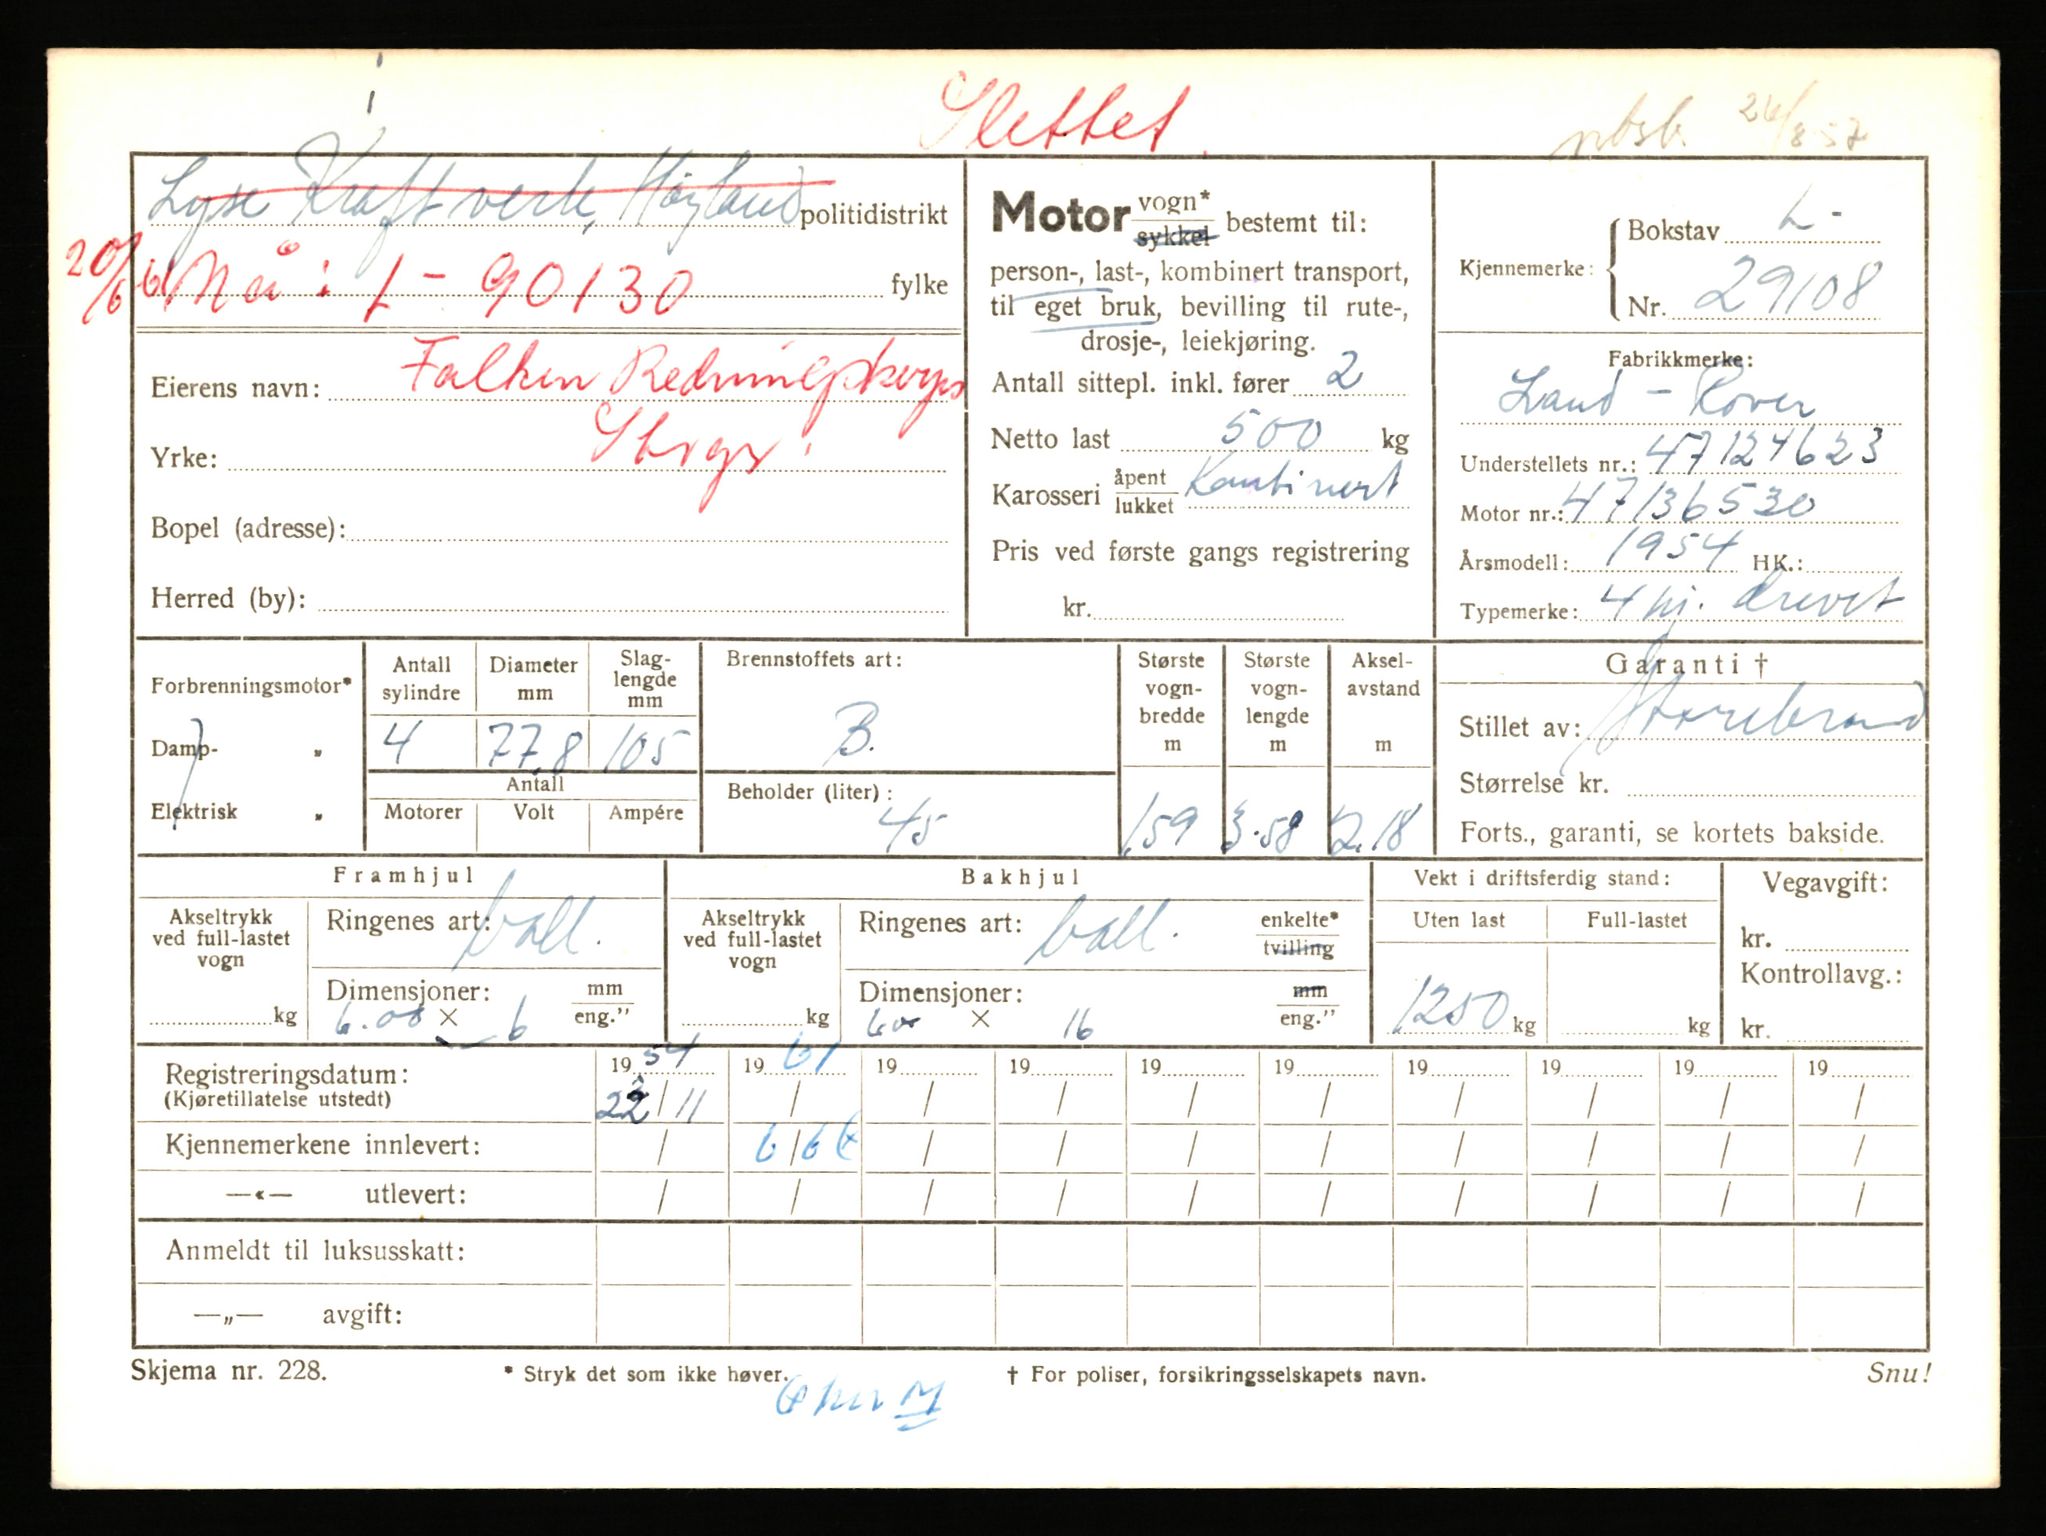 Slettet
26/8 57
Lyse Kraftverk, Høyland politidistrikt
20/6 61 Nå: L - 90130 fylke
Eierens navn: Falken Redningskorps
Yrke:
Bopel (adresse):
Herred (by):
Motor vogn* sykkel bestemt til:
person-, last-, kombinert transport,
til eget bruk, bevilling til rute-,
drosje-, leiekjøring.
Antall sittepl. inkl. fører 2
Netto last 500 kg
Karosseri åpent lukket Kombinert
Pris ved første gangs registrering
kr.
Kjennemerke: Bokstav L-
Nr. 29108
Fabrikkmerke:
Land - Rover
Understellets nr.: 47124623
Motor nr.: 47136530
Årsmodell: 1954 HK.:
Typemerke: 4 hj. drevet
Forbrenningsmotor*
Damp- „
Elektrisk „
Antall sylindre 4
Diameter mm 77,8
Slag-lengde mm 105
Antall
Motorer Volt Ampére
Brennstoffets art:
B.
Beholder (liter):
45
Største vogn-bredde m 1.59
Største vogn-lengde m 3.58
Aksel-avstand m 2.18
Garanti †
Stillet av: Storebrand
Størrelse kr.
Forts., garanti, se kortets bakside.
Framhjul
Akseltrykk ved full-lastet vogn
kg
Ringenes art: ball.
Dimensjoner: mm eng."
6.00 × 6
Bakhjul
Akseltrykk ved full-lastet vogn
kg
Ringenes art: ball. enkelte* tvilling
Dimensjoner: mm eng."
600 × 16
Vekt i driftsferdig stand:
Uten last Full-lastet
1250 kg kg
Vegavgift:
kr.
Kontrollavg.:
kr.
Registreringsdatum: 1954 1961 19 19 19 19 19 19 19 19
(Kjøretillatelse utstedt) 22/11 / / / / / / / / /
Kjennemerkene innlevert: / 6/6 / / / / / / / /
—«— utlevert: / / / / / / / / / /
Anmeldt til luksusskatt:
—„— avgift:
Skjema nr. 228. * Stryk det som ikke høver. † For poliser, forsikringsselskapets navn. Snu!